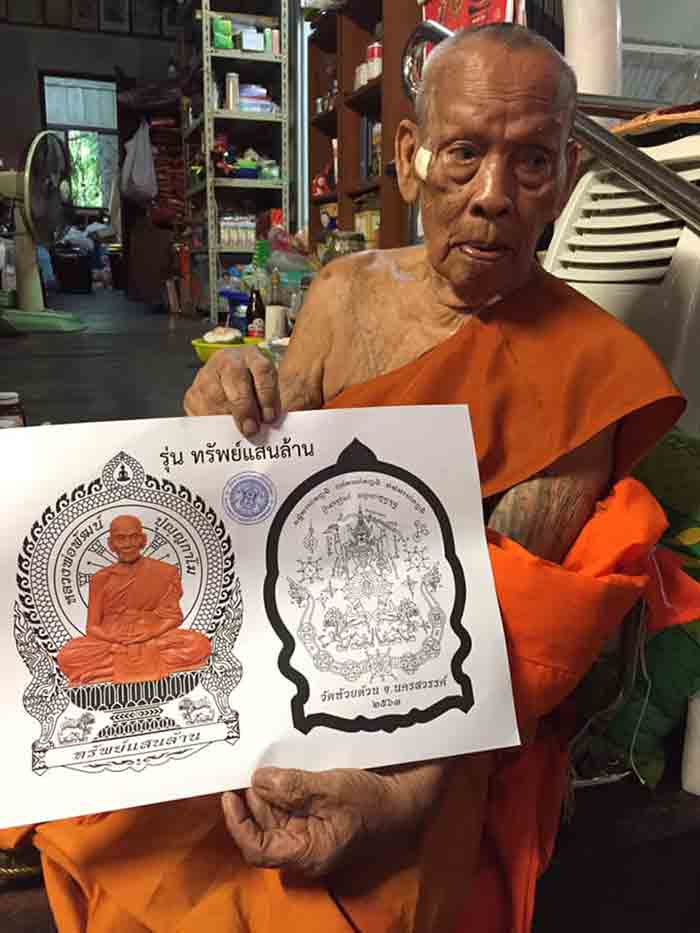 รุ่น ทรัพย์แสนล้าน
หลวงพ่อพัฒน์ ปุญญกาโม
ทรัพย์แสนล้าน
วัดห้วยด้วน จ.นครสวรรค์
๒๕๖๓